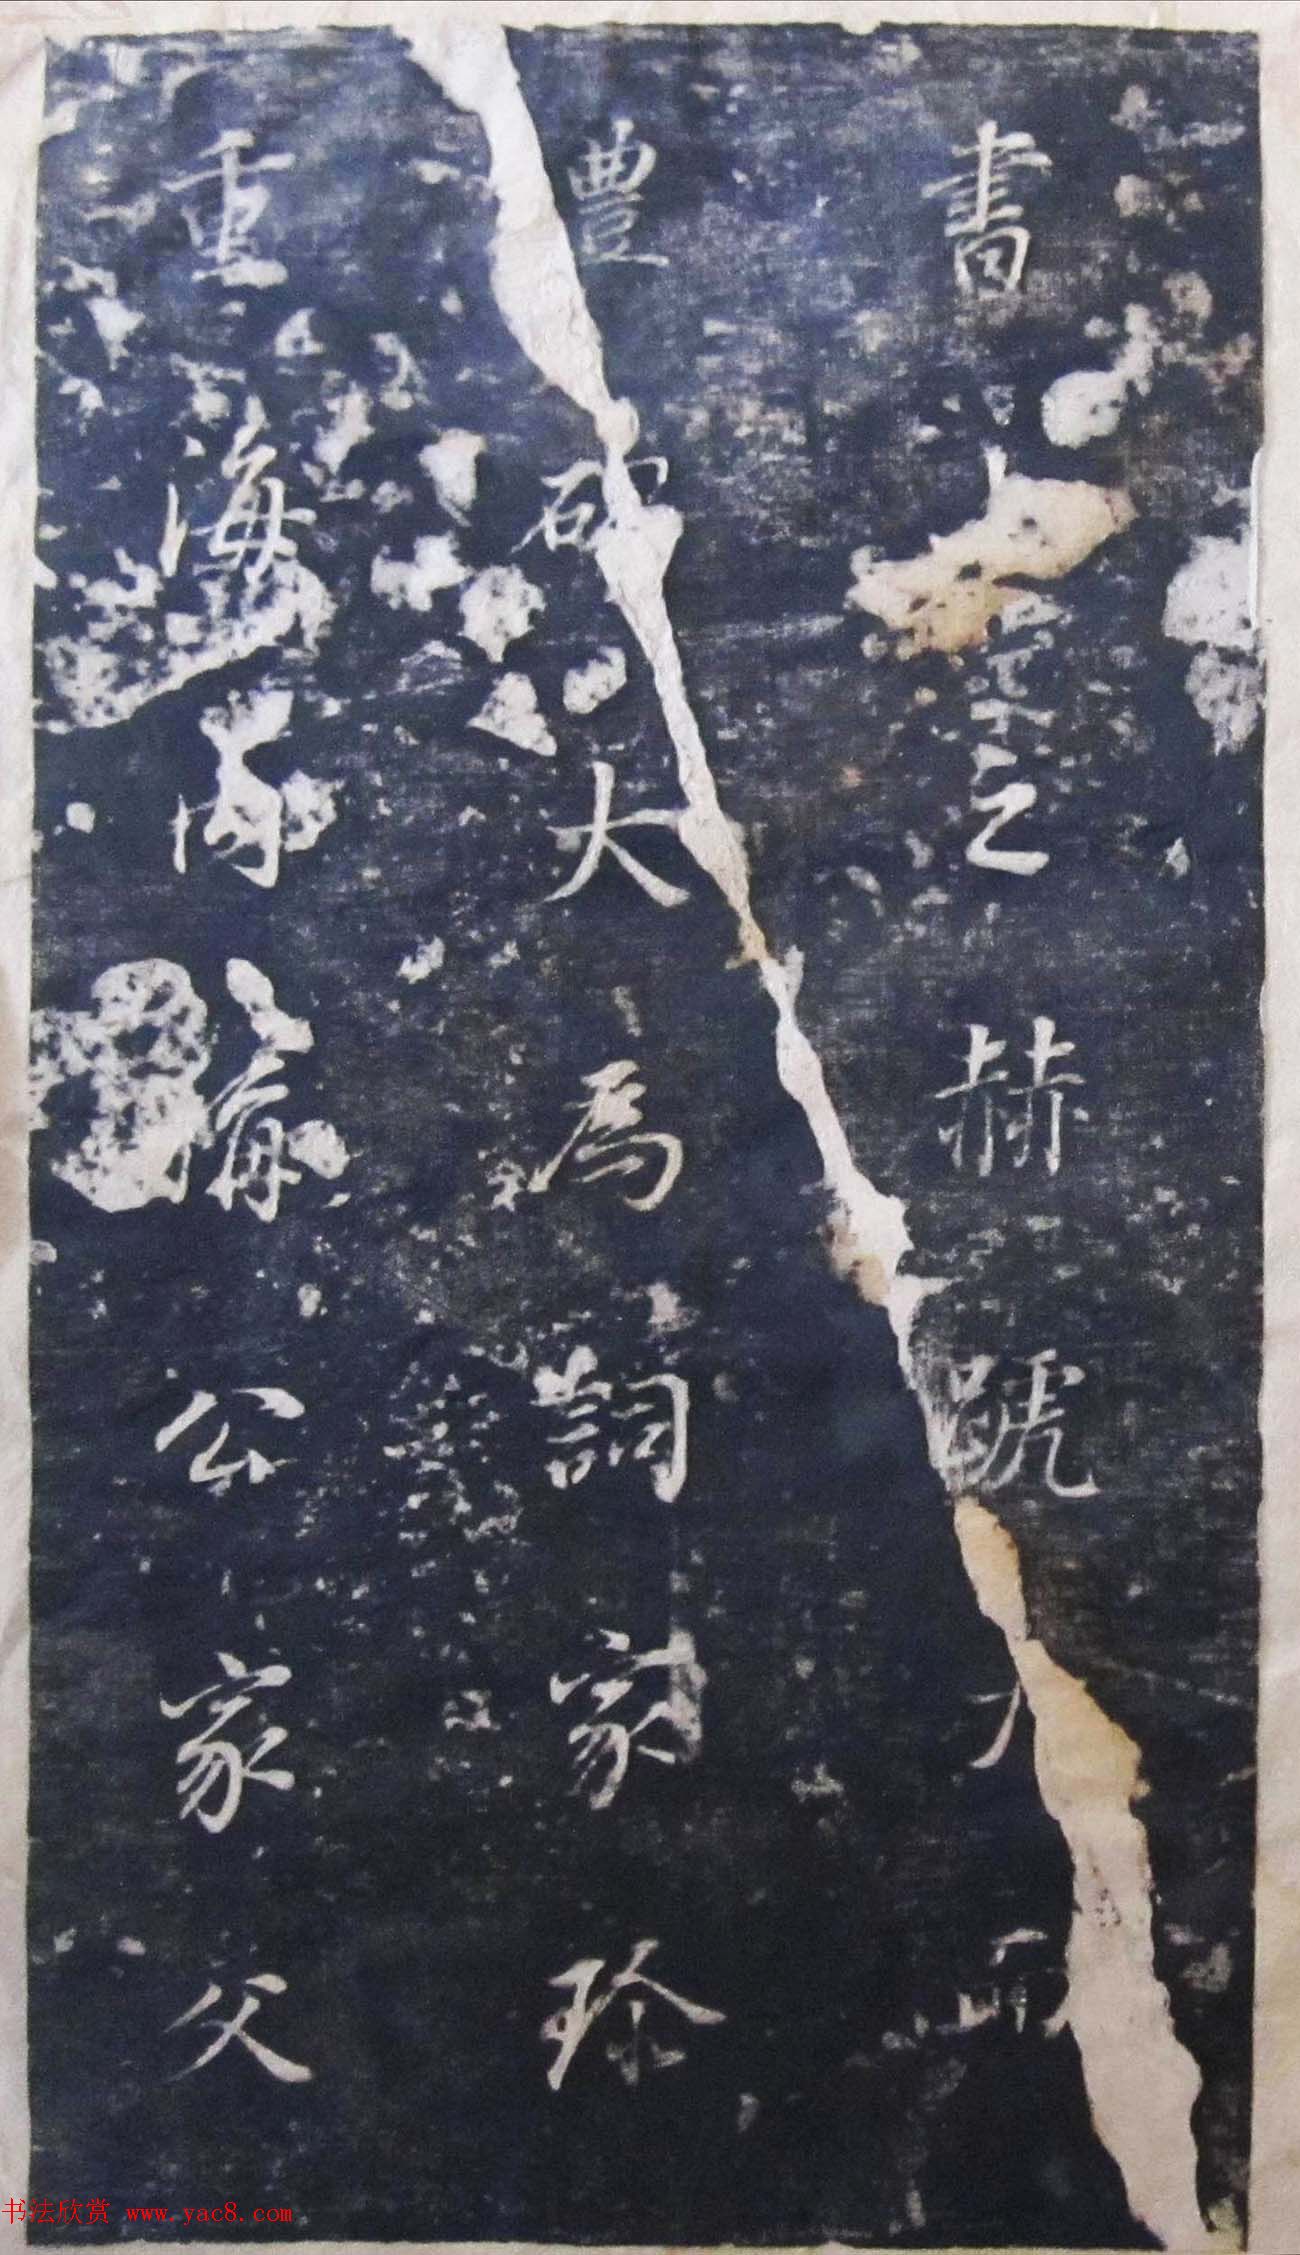 書之赫號
豊碑大為詞家珍
重海內襄公家父
书法欣赏 www.yac8.com